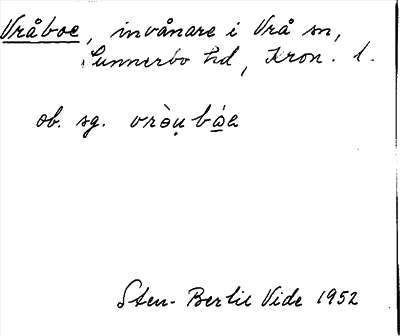 Vråboe, invånare i Vrå sn,
Sunnerbo hd, Kron. l.
ob. sg. vròu̥ bòe
Sten-Bertil Vide 1952